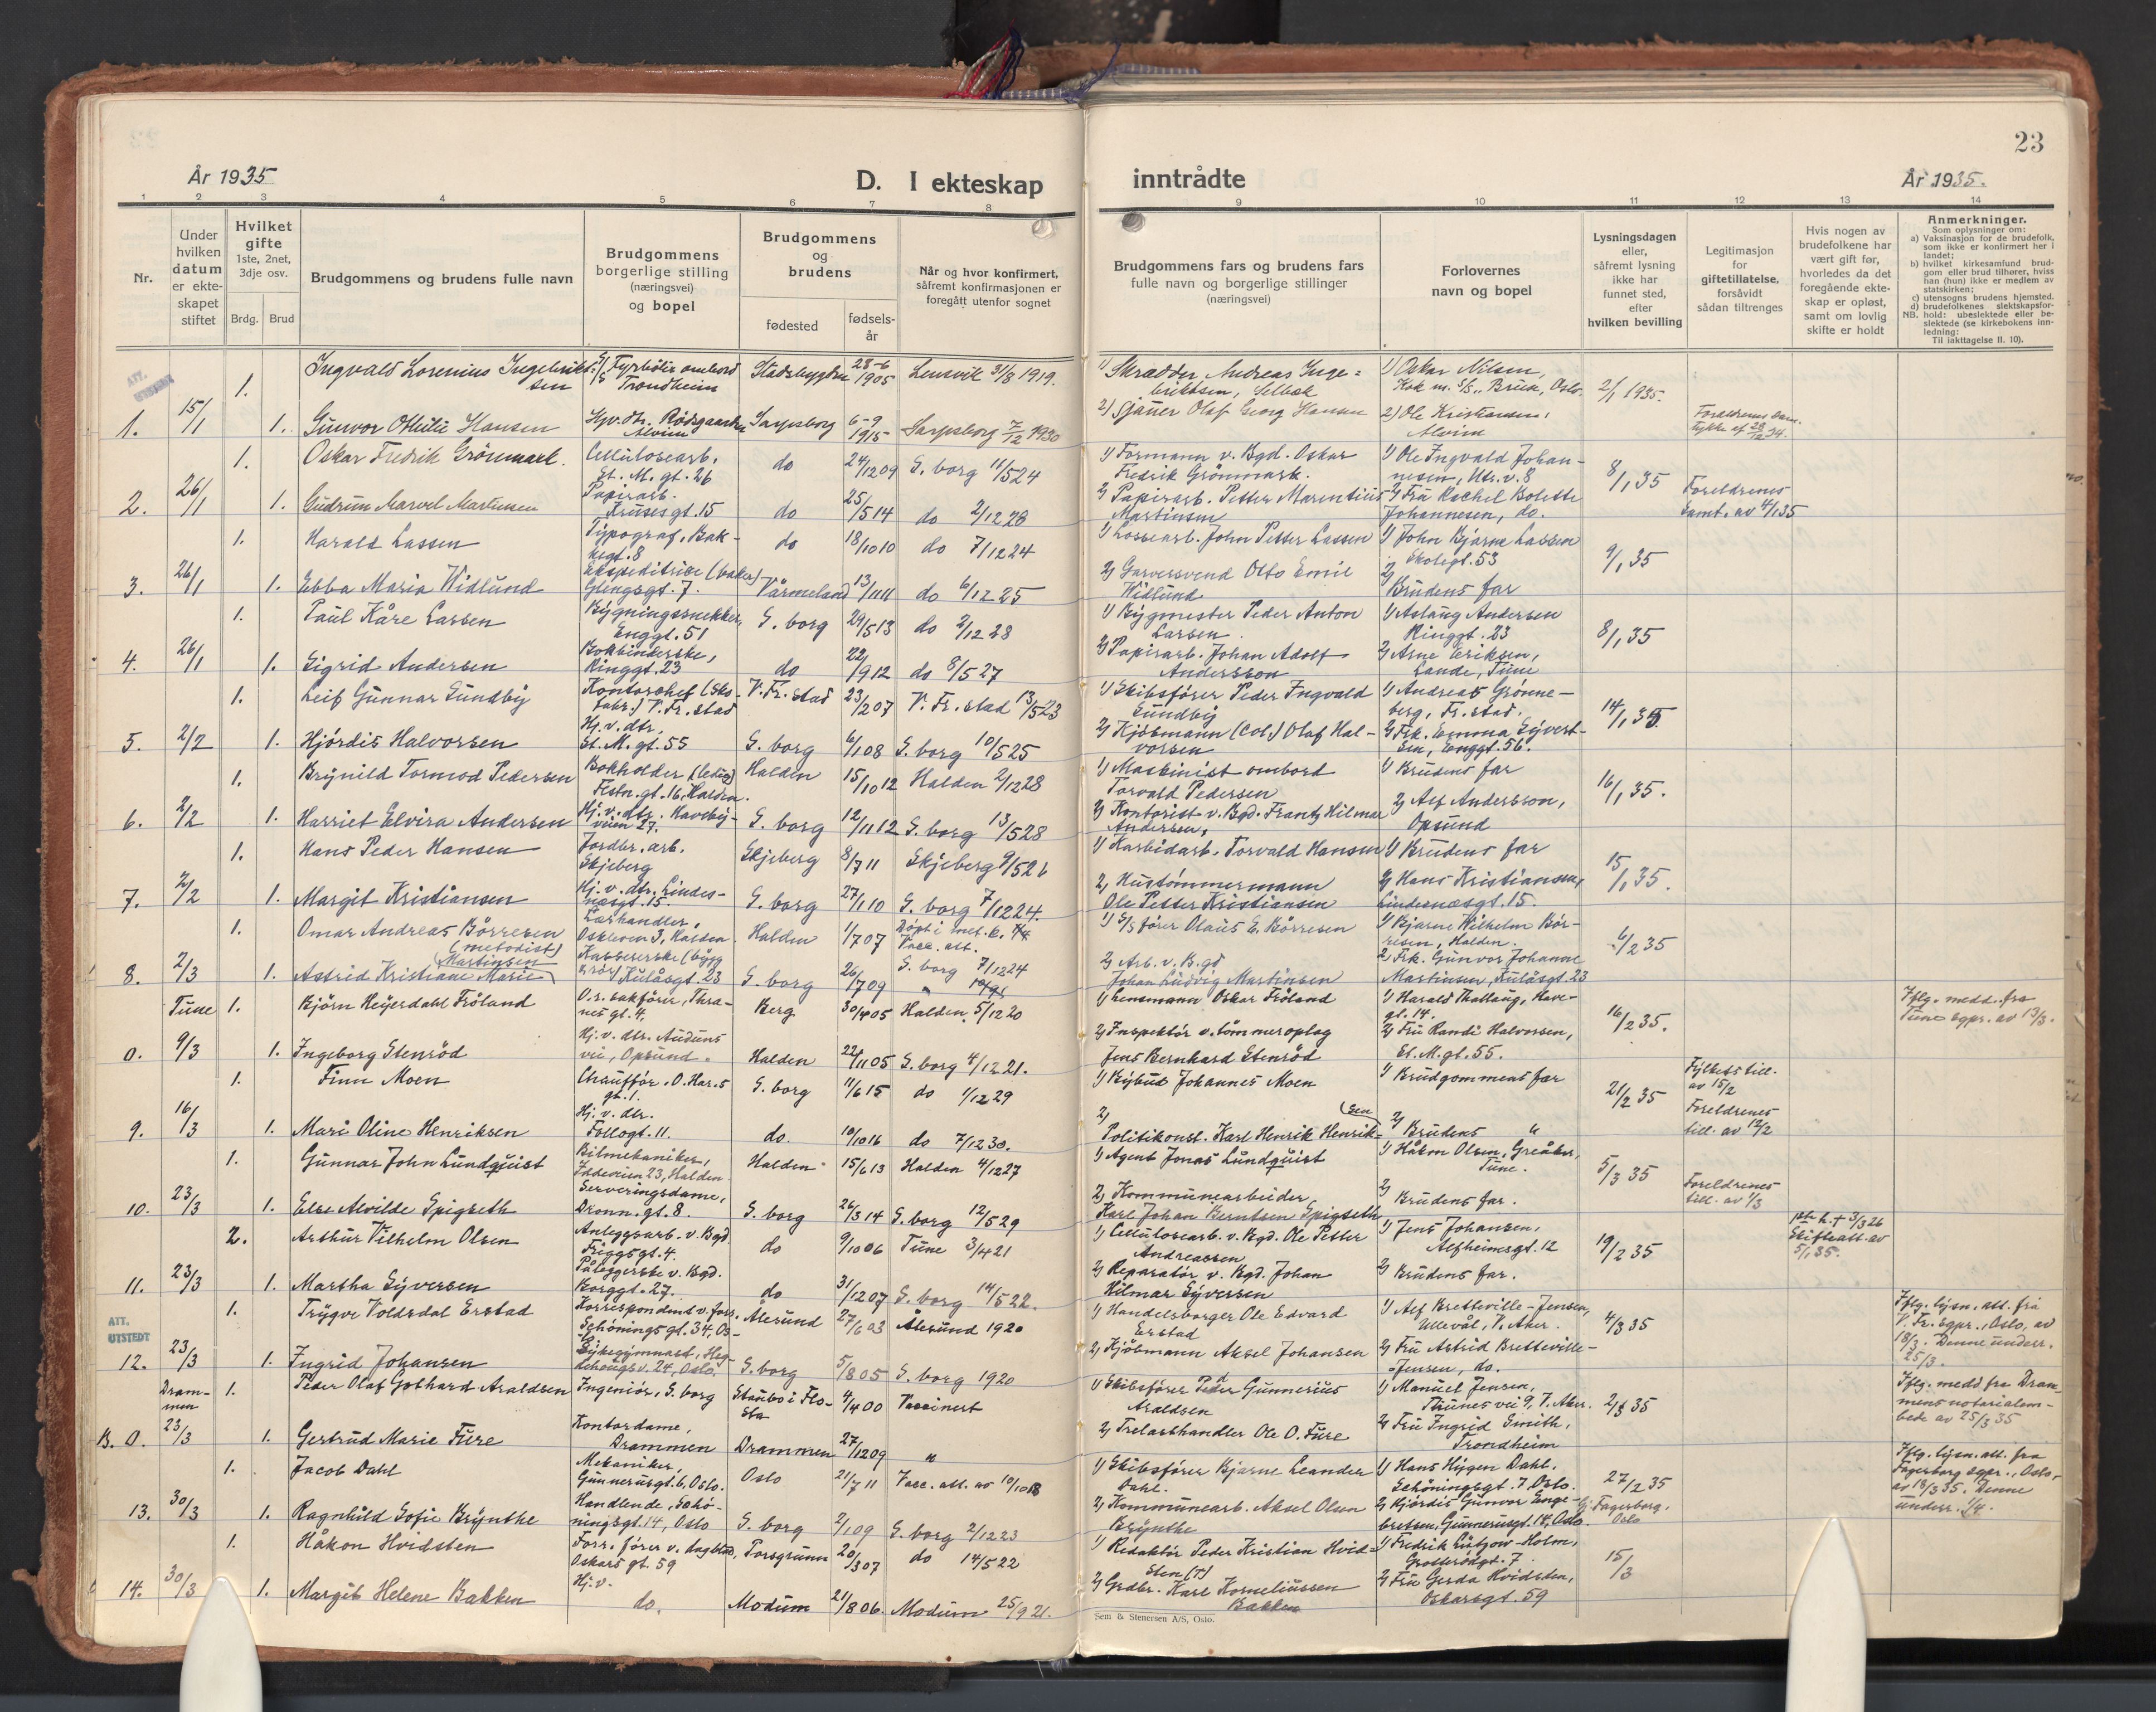 23
År 1935
D. I ekteskap
inntrådte
År 1935.
1 2 3 4 5 6 7 8 9 10 11 12 13 14
Nr.
Under
hvilken
datum
er ekte-
skapet
stiftet
Hvilket
gifte
1ste, 2net,
3dje osv.
Brdg. Brud
Brudgommens og brudens fulle navn
Brudgommens
borgerlige stilling
(næringsvei)
og bopel
Brudgommens
og
brudens
fødested
fødsels-
år
Når og hvor konfirmert,
såfremt konfirmasjonen er
foregått utenfor sognet
Brudgommens fars og brudens fars
fulle navn og borgerlige stillinger
(næringsvei)
Forlovernes
navn og bopel
Lysningsdagen
eller,
såfremt lysning
ikke har
funnet sted,
efter
hvilken bevilling
Legitimasjon
for
giftetillatelse,
forsåvidt
sådan tiltrenges
Hvis nogen av
brudefolkene har
vært gift før,
hvorledes da det
foregående ekte-
skap er opløst,
samt om lovlig
skifte er holdt
Anmerkninger.
Som oplysninger om:
a) Vaksinasjon for de brudefolk,
som ikke er konfirmert her i
landet;
b) hvilket kirkesamfund brud-
gom eller brud tilhører, hviss
han (hun) ikke er medlem av
statskirken;
c) utensogns brudens hjemsted.
d) brudefolkenes slektskapsfor-
NB. hold: ubeslektede eller be-
slektede (se kirkebokens inn-
ledning:
Til iakttagelse II. 10).
ATT.
UTSTEDT
1. Ingvald Lorenius Ingebrikt-
sen
Fyrbøter ombord
Trondheim
Stadsbygden 28-6 1905 Lensvik 31/8 1919.
1) Skrædder Andreas Inge-
briktsen, Selbek
1) Oskar Nilsen,
Kok m. S/S. Bruse, Oslo.
2/1 1935.
1. 15/1 1. Gunvor Othilie Hansen
Hjv. dtr. Rødsgaarden
Alvim
Sarpsborg 6-9 1915 Sarpsborg 7/12 1930
2) Sjauer Olaf Georg Hansen
2) Ole Kristiansen,
Alvim
Foreldrenes sam-
tykke af 28/12 34.
1. Oskar Fredrik Grönmark.
Cellulosearb.
St. M. gt. 26
do 24/12 09 S. borg 11/5 24
1) Formann v. Bgd. Oskar
Fredrik Grönmark.
1) Ole Ingvald Johan-
nesen, Utr. v. 8
8/1 35
2. 26/1 1. Gudrun Marvel Martinsen
Papirarb.
Krusesgt. 15
do 25/5 14 do 2/12 28
2) Papirarb. Petter Marentius
Martinsen
2) Fru Rachel Bolette
Johannesen, do.
Foreldrenes
Samt. av 4/1 35
1. Harald Lassen
Typograf, Bak-
kegt. 8
do 18/10 10 do 7/12 24
1) Lossearb. John Petter Lassen
1) John Bjarne Lassen
Skolegt. 53
9/1 35
3. 26/1 1. Ebba Maria Widlund
Ekspeditrise (baker)
Glengsgt. 7.
Värmeland 13/11 11 do 6/12 25
2) Garversvend Otto Emil
Widlund
2) Brudens far
1. Paul Kåre Larsen
Bygningssnekker,
Enggt. 51
S. borg 29/5 13 do 2/12 28
1) Bygmester Peder Anton
Larsen.
1) Aslaug Andersen
Ringgt. 23
8/1 35
4. 26/1 1. Sigrid Andersen
Bokbinderske,
Ringgt. 23
do 22/9 12 do 8/5 27
2) Papirarb. Johan Adolf
Andersson
2) Arne Eriksen,
Lande, Tune
1. Leif Gunnar Sundby
Kontorchef (Sko-
fabr.) V. Fr. stad
V. Fr. stad 23/2 07 V. Fr. stad 13/5 23
1) Skibsfører Peder Ingvald
Sundby
1) Andreas Grønne-
berg, Fr. stad.
14/1 35
5. 2/2 1. Hjördis Halvorsen
Hj. v. dtr.
St. M. gt. 55
S. borg 6/1 08 S. borg 10/5 25
2) Kjöbmann (Col.) Olaf Hal-
vorsen
2) Frk. Emma Syvert-
sen, Enggt. 56.
1. Brynild Tormod Pedersen
Bokholder (ledig)
Festn. gt. 16, Halden.
Halden 15/10 12 Halden 2/12 28
1) Maskinist ombord
Torvald Pedersen
1) Brudens far
16/1 35.
6. 2/2 1. Harriet Elvira Andersen
Hj. v. dtr. Haveby-
veien 27.
S. borg 12/11 12 S. borg 13/5 28
2) Kontorist v. Bgd. Frantz Hilmar
Andersen,
2) Alf Andersson,
Opsund
1. Hans Peder Hansen
Jordbr. arb.
Skjeberg
Skjeberg 8/7 11 Skjeberg 9/5 26
1) Karbidarb. Torvald Hansen
1) Brudens far
15/1 35.
7. 2/2 1. Margit Kristiansen
Hj. v. dtr. Lindes-
næsgt. 15.
S. borg 27/1 10 S. borg 7/12 24.
2) Hustømmermann
Ole Petter Kristiansen
2) Hans Kristiansen,
Lindesnæsgt. 15.
1. Omar Andreas Börresen
(metodist)
Lærhandler,
Oskleven 3, Halden.
Halden 11/7 07 Döpt i met. k.
Vacc. att.
1) S/S fører Olaus E. Börresen
1) Bjarne Wilhelm Bör-
resen, Halden.
6/2 35
8. 2/3 1. Astrid Kristiane Marie
Martinsen
Kassererske (bygg
Kulåsgt. 23
S. borg 26/7 09 S. borg 7/12 24
2) Arb. v. B. gd
Johan Ludvig Martinsen
2) Frk. Gunvor Johanne
Martinsen, Kulåsgt. 23
Tune 1. Björn Heyerdahl Fröland
O. r. sakfører, Thra-
nes gt. 4.
Berg 30/4 05 Halden 5/12 20
1) Lensmann Oskar Fröland
1) Harald Thallaug, Have-
gt. 14.
16/2 35.
Iflg. medd. fra
Tune sgpr. av 13/3.
0. 9/3 1. Ingeborg Stenröd
Hj. v. dtr. Auduns
vei, Opsund.
Halden 22/11 05 S. borg 4/12 21.
2) Inspektör v. tömmeroplag
Jens Bernhard Stenröd
2) Fru Randi Halvorsen,
St. M. gt. 55.
1. Finn Moen
Chauffør. O. Har. s
gt. 1.
S. borg 11/6 15 do 1/12 29
1) Bybud Johannes Moen
1) Brudgommens far
21/2 35
Fylkets till.
av 15/2
9. 16/3 1. Mari Oline Henriksen
Hj. v. dtr.
Follogt. 11.
do. 10/10 16 do 7/12 30.
2) Politikonst. Karl Henrik Henrik-
sen
2) Brudens "
Foreldrenes
till. av 12/2
1. Gunnar John Lundquist
Bilmekaniker,
Iddeveien 23, Halden.
Halden 15/6 13 Halden 4/12 27
1) Agent Jonas Lundquist
1) Håkon Olsen, Greåker,
Tune.
5/3 35
10. 23/3 1. Else Alvilde Spigseth
Serveringsdame,
Dronn. gt. 8.
S. borg 26/3 14 S. borg 12/5 29
2) Kommunearbeider
Karl Johan Berntsen Spigseth
2) Brudens far.
Foreldrenes
till. av 1/3
2. Arthur Vilhelm Olsen
Anleggsarb. v. Bgd.
Friggsgt. 4.
do 9/10 06 Tune 3/4 21
1) Cellulosearb. v. Bgd. Ole Petter
Andreassen
1) Jens Johansen,
Alfheimsgt. 12
19/2 35
h. † 3/3 26
Skifteatt. av
5/1 35.
11. 23/3 1. Martha Syversen
Påleggerske v. Bgd.
Borggt. 27.
do 31/12 07 S. borg 14/5 22.
2) Reparatör v. Bgd. Johan
Hilmar Syversen
2) Brudens far.
ATT.
UTSTEDT
1. Trygve Voldsdal Erstad
Korrespondent v. fors.
Schönings gt. 34, Os-
Ålesund 27/6 03 Ålesund 1920
1) Handelsborger Ole Edvard
Erstad
1) Alf Bretteville-Jensen,
Ullevål, V. Aker.
4/3 35
Iflg. lysn. att. fra
V. Fr. sgpr., Oslo, av
18/3. Denne underr.
25/3.
12. 23/3 1. Ingrid Johansen
Sykegymnast, Heg-
dehaugsv. 24, Oslo.
S. borg 5/8 05 S. borg 1920
2) Kjöbmann Aksel Johansen
2) Fru Astrid Bretteville-
Jensen, do.
Dram-
men
1. Peder Olaf Gothard Araldsen
Ingeniör, S. borg
Staubö i Flo-
sta
4/4 00 Vaccinert
1) Skibsfører Peder Gunnerius
Araldsen
1) Manuel Jensen,
Thunes vei 9, V. Aker.
2/3 35
Iflg. medd fra Dram-
mens notarialem-
bede av 25/3 35
B. 0. 23/3 1. Gertrud Marie Fure
Kontordame,
Drammen
Drammen 27/12 09 "
2) Trelasthandler Ole O. Fure
2) Fru Ingrid Smith,
Trondheim
1. Jacob Dahl
Mekaniker,
Gunnerusgt. 6, Oslo.
Oslo 21/7 11 Vacc. att. av 19/10 18
1) Skibsfører Bjarne Leander
Dahl.
1) Hans Hygen Dahl.
Schöningsgt. 7, Oslo.
27/2 35
Fagerborg,
Oslo
Iflg. lysn. att. fra
Fagerborg sgpr., Oslo,
av 18/3 35. Denne
underr. 1/4.
13. 30/3 1. Ragnhild Sofie Brynthe
Handlende, Schö-
ningsgt. 14, Oslo
S. borg 2/1 09 S. borg 2/12 23
2) Kommunearb. Aksel Olsen
Brynthe
2) Hjördis Gunvor Enge-
bretsen, Gunnerusgt. 14, Oslo.
1. Håkon Hvidsten
Forr. fører v. dagblad,
Oskars gt. 59
Porsgrunn 20/3 07 do 14/5 22
1) Redaktör Peder Kristian Hvid-
sten (†)
1) Fredrik Lützow-Holm,
Grotterödgt. 7.
15/3
14. 30/3 1. Margit Helene Bakken
Hj. v.
do.
Modum 21/8 06. Modum 25/9 21.
2) Grdbr. Karl Korneliussen
Bakken
2) Fru Gerda Hvidsten,
Oskarsgt. 59
Sem & Stenersen A/S, Oslo.